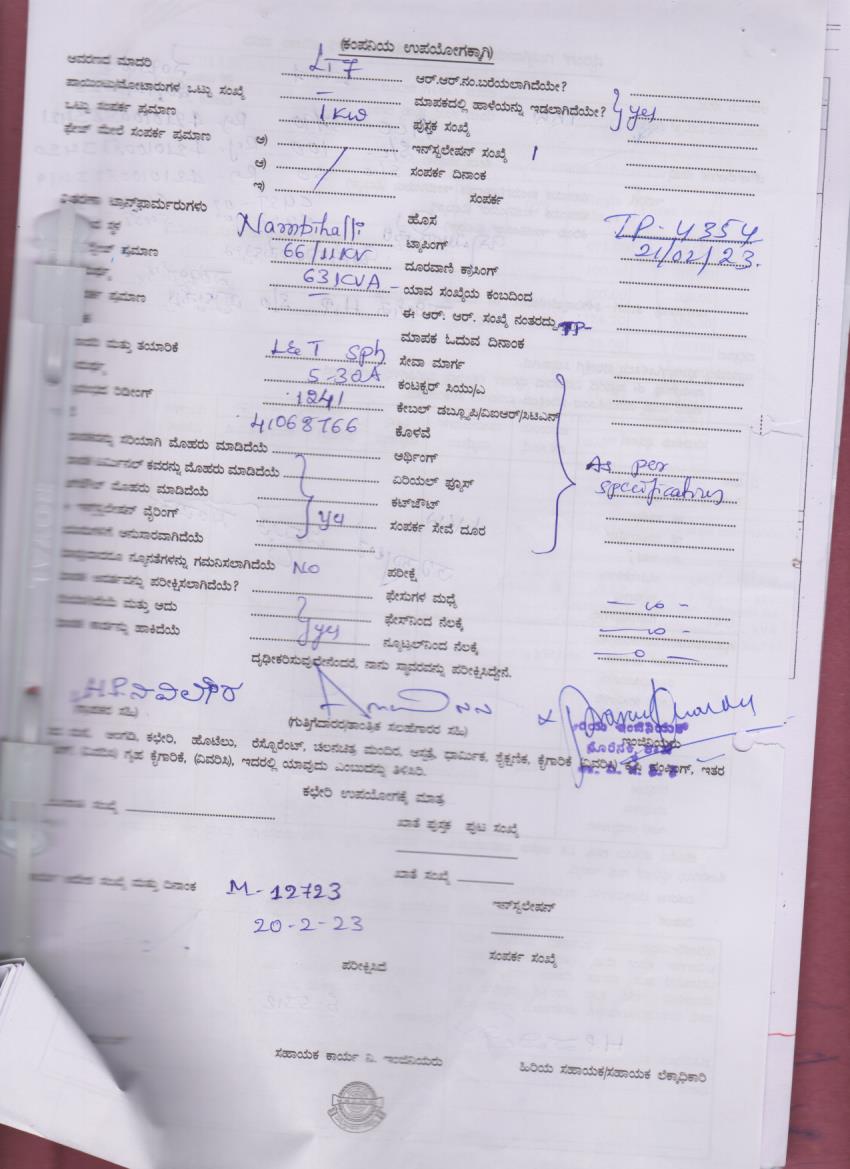 (ಕಂಪನಿಯ ಉಪಯೋಗಕ್ಕಾಗಿ)
ಆವರಣದ ಮಾದರಿ LT7 ಆರ್.ಆರ್.ನಂ.ಬರೆಯಲಾಗಿದೆಯೇ?
ಪಾಯಿಂಟು/ಮೋಟಾರುಗಳ ಒಟ್ಟು ಸಂಖ್ಯೆ - ಮಾಪಕದಲ್ಲಿ ಹಾಳೆಯನ್ನು ಇಡಲಾಗಿದೆಯೇ? yes
ಒಟ್ಟು ಸಂಪರ್ಕ ಪ್ರಮಾಣ 1KW ಪುಸ್ತಕ ಸಂಖ್ಯೆ
ಫೇಜ್ ಮೇಲೆ ಸಂಪರ್ಕ ಪ್ರಮಾಣ ಅ) ಇನ್‌ಸ್ಟಲೇಷನ್ ಸಂಖ್ಯೆ
ಆ) ಸಂಪರ್ಕ ದಿನಾಂಕ
ಇ) ಸಂಪರ್ಕ
ವಿತರಣಾ ಟ್ರಾನ್ಸ್‌ಫಾರ್ಮರುಗಳು
ಸ್ಥಳ Nambihalli ಹೊಸ TP-4354
ಪ್ರಮಾಣ 66/11KV ಟ್ಯಾಪಿಂಗ್ 21/02/23.
63KVA - ದೂರವಾಣಿ ಕ್ರಾಸಿಂಗ್
ಪ್ರಮಾಣ - ಯಾವ ಸಂಖ್ಯೆಯ ಕಂಬದಿಂದ
ಈ ಆರ್. ಆರ್. ಸಂಖ್ಯೆ ನಂತರದ್ದು TP-
ಮಾಪಕ ಓದುವ ದಿನಾಂಕ
ಮತ್ತು ತಯಾರಿಕೆ L&T sph ಸೇವಾ ಮಾರ್ಗ
5-30A ಕಂಟಕ್ಟರ್ ಸಿಯು/ಎ
ರಿಡಿಂಗ್ 1241 ಕೇಬಲ್ ಡಬ್ಲ್ಯೂಪಿ/ವಿಐಆರ್/ಸಿಟಿಎಸ್
41068766 ಕೊಳವೆ
ಸರಿಯಾಗಿ ಮೊಹರು ಮಾಡಿದೆಯೆ ಅರ್ಥಿಂಗ್
ಕವರನ್ನು ಮೊಹರು ಮಾಡಿದೆಯೆ ಏರಿಯಲ್ ಫ್ಯೂಸ್ As per
ಮೊಹರು ಮಾಡಿದೆಯೆ ಕಟ್‌ಔಟ್ specifications
ವೈರಿಂಗ್ ye ಸಂಪರ್ಕ ಸೇವೆ ದೂರ
ಅನುಸಾರವಾಗಿದೆಯೆ
ನ್ಯೂನತೆಗಳನ್ನು ಗಮನಿಸಲಾಗಿದೆಯೆ NO ಪರೀಕ್ಷೆ
ಪರೀಕ್ಷಿಸಲಾಗಿದೆಯೆ? ಫೇಸುಗಳ ಮಧ್ಯೆ
ಮತ್ತು ಅದು ಫೇಸ್‌ನಿಂದ ನೆಲಕ್ಕೆ
ಹಾಕಿದೆಯೆ yes ನ್ಯೂಟ್ರಲ್‌ನಿಂದ ನೆಲಕ್ಕೆ
ದೃಢೀಕರಿಸುವುದೇನೆಂದರೆ. ನಾನು ಸ್ಥಾವರವನ್ನು ಪರೀಕ್ಷಿಸಿದ್ದೇನೆ.
(ಗುತ್ತಿಗೆದಾರರ/ತಾಂತ್ರಿಕ ಸಲಹೆಗಾರರ ಸಹಿ) ಇಂಜಿನಿಯರು
ಅಂಗಡಿ, ಕಛೇರಿ, ಹೊಟೇಲು, ರೆಸ್ಟೊರೆಂಟ್, ಚಲನಚಿತ್ರ ಮಂದಿರ, ಆಸ್ಪತ್ರೆ, ಧಾರ್ಮಿಕ, ಶೈಕ್ಷಣಿಕ, ಕೈಗಾರಿಕೆ (ವಿವರಿಸಿ) ಕೃಷಿ ಪಂಪಿಂಗ್, ಇತರ
ಗೃಹ ಕೈಗಾರಿಕೆ, (ವಿವರಿಸಿ), ಇದರಲ್ಲಿ ಯಾವುದು ಎಂಬುದನ್ನು ತಿಳಿಸಿರಿ.
ಕಛೇರಿ ಉಪಯೋಗಕ್ಕೆ ಮಾತ್ರ
ಸಂಖ್ಯೆ ಖಾತೆ ಪುಸ್ತಕ ಪುಟ ಸಂಖ್ಯೆ
ಖಾತೆ ಸಂಖ್ಯೆ
ಸಂಖ್ಯೆ ಮತ್ತು ದಿನಾಂಕ M-12723 ಇನ್‌ಸ್ಟಲೇಷನ್
20-2-23
ಸಂಪರ್ಕ ಸಂಖ್ಯೆ
ಪರೀಕ್ಷಿಸಿದೆ
ಸಹಾಯಕ ಕಾರ್ಯ ನಿ. ಇಂಜಿನಿಯರು ಹಿರಿಯ ಸಹಾಯಕ/ಸಹಾಯಕ ಲೆಕ್ಕಾಧಿಕಾರಿ